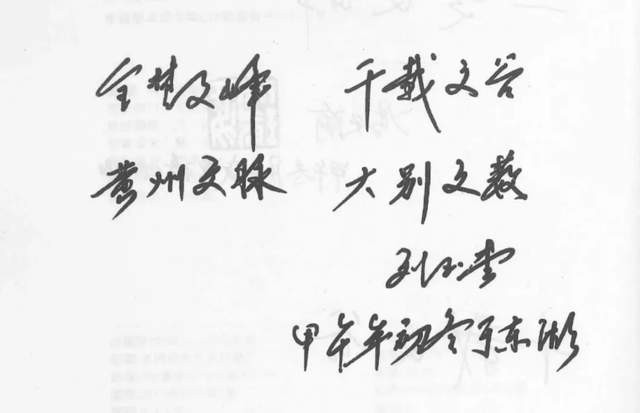 全楚文峰 千载文谷
黄州文脉 大别文薮
刘玉堂
甲午年初冬于东湖